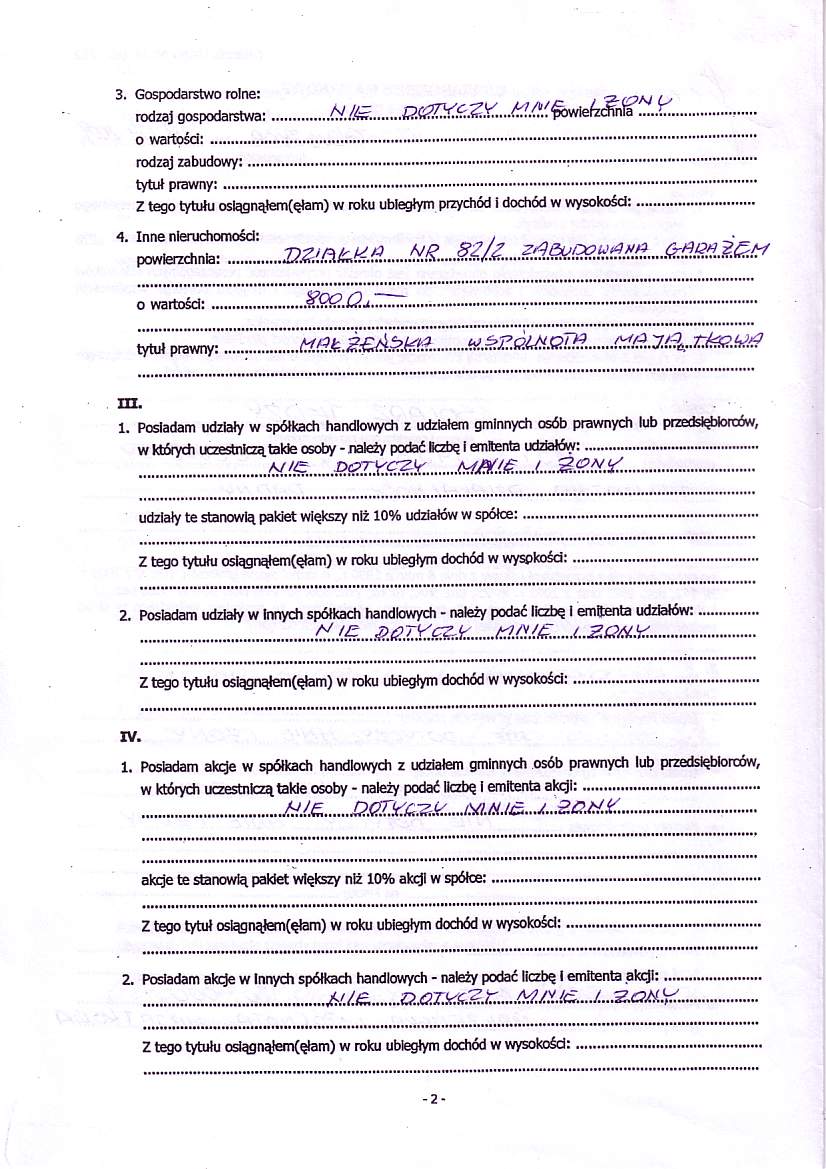 3. Gospodarstwo rolne:
rodzaj gospodarstwa: ..... NIE DOTYCZY MNIE I ŻONY powierzchnia .....
o wartości: .....
rodzaj zabudowy: .....
tytuł prawny: .....
Z tego tytułu osiągnąłem(ęłam) w roku ubiegłym przychód i dochód w wysokości: .....
4. Inne nieruchomości:
powierzchnia: ..... DZIAŁKA NR 82/2 ZABUDOWANA GARAŻEM
o wartości: ..... 8000,—
tytuł prawny: ..... MAŁŻEŃSKA WSPÓLNOTA MAJĄTKOWA
III.
1. Posiadam udziały w spółkach handlowych z udziałem gminnych osób prawnych lub przedsiębiorców,
w których uczestniczą takie osoby - należy podać liczbę i emitenta udziałów: .....
NIE DOTYCZY MNIE I ŻONY
udziały te stanowią pakiet większy niż 10% udziałów w spółce: .....
Z tego tytułu osiągnąłem(ęłam) w roku ubiegłym dochód w wysokości: .....
2. Posiadam udziały w innych spółkach handlowych - należy podać liczbę i emitenta udziałów: .....
NIE DOTYCZY MNIE I ŻONY
Z tego tytułu osiągnąłem(ęłam) w roku ubiegłym dochód w wysokości: .....
IV.
1. Posiadam akcje w spółkach handlowych z udziałem gminnych osób prawnych lub przedsiębiorców,
w których uczestniczą takie osoby - należy podać liczbę i emitenta akcji: .....
NIE DOTYCZY MNIE I ŻONY
akcje te stanowią pakiet większy niż 10% akcji w spółce: .....
Z tego tytuł osiągnąłem(ęłam) w roku ubiegłym dochód w wysokości: .....
2. Posiadam akcje w innych spółkach handlowych - należy podać liczbę i emitenta akcji: .....
NIE DOTYCZY MNIE I ŻONY
Z tego tytułu osiągnąłem(ęłam) w roku ubiegłym dochód w wysokości: .....
- 2 -